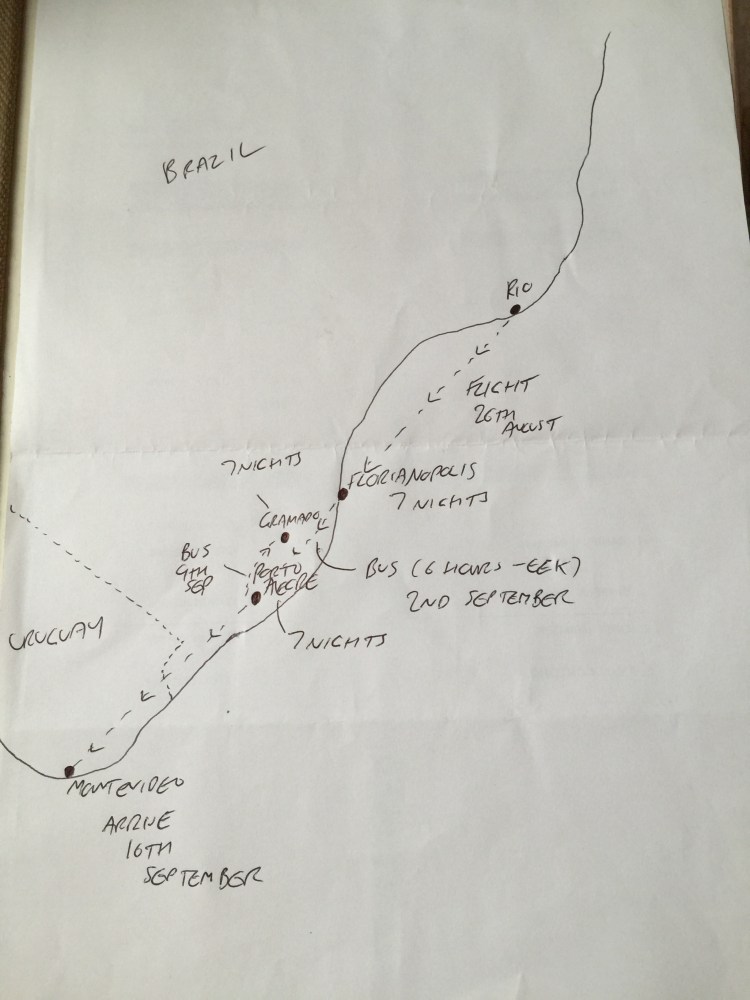 BRAZIL
RIO
FLIGHT
26TH
AUGUST
7 NIGHTS
FLORIANOPOLIS
7 NIGHTS
GRAMADO
BUS
9TH
SEP
PORTO
ALEGRE
BUS (6 HOURS - EEK)
2ND SEPTEMBER
URUGUAY
7 NIGHTS
MONTEVIDEO
ARRIVE
16TH
SEPTEMBER